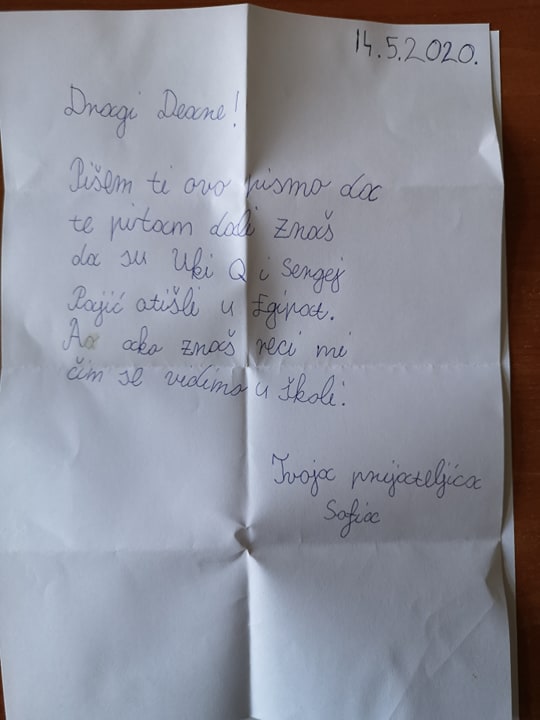 14.5.2020.
Dragi Deane!
Pišem ti ovo pismo da
te pitam dali znaš
da su Uki Q i Sergej
Pajić otišli u Egipat.
A ako znaš reci mi
čim se vidimo u školi.
Tvoja prijateljica
Sofia